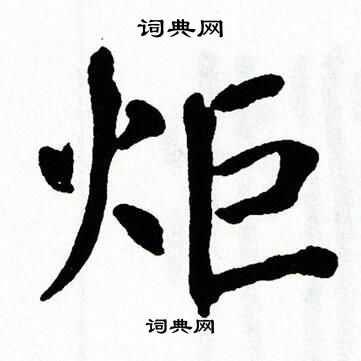 词典网
炬
词典网